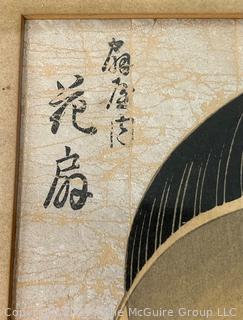 扇屋内
花扇
McGuire Group LLC